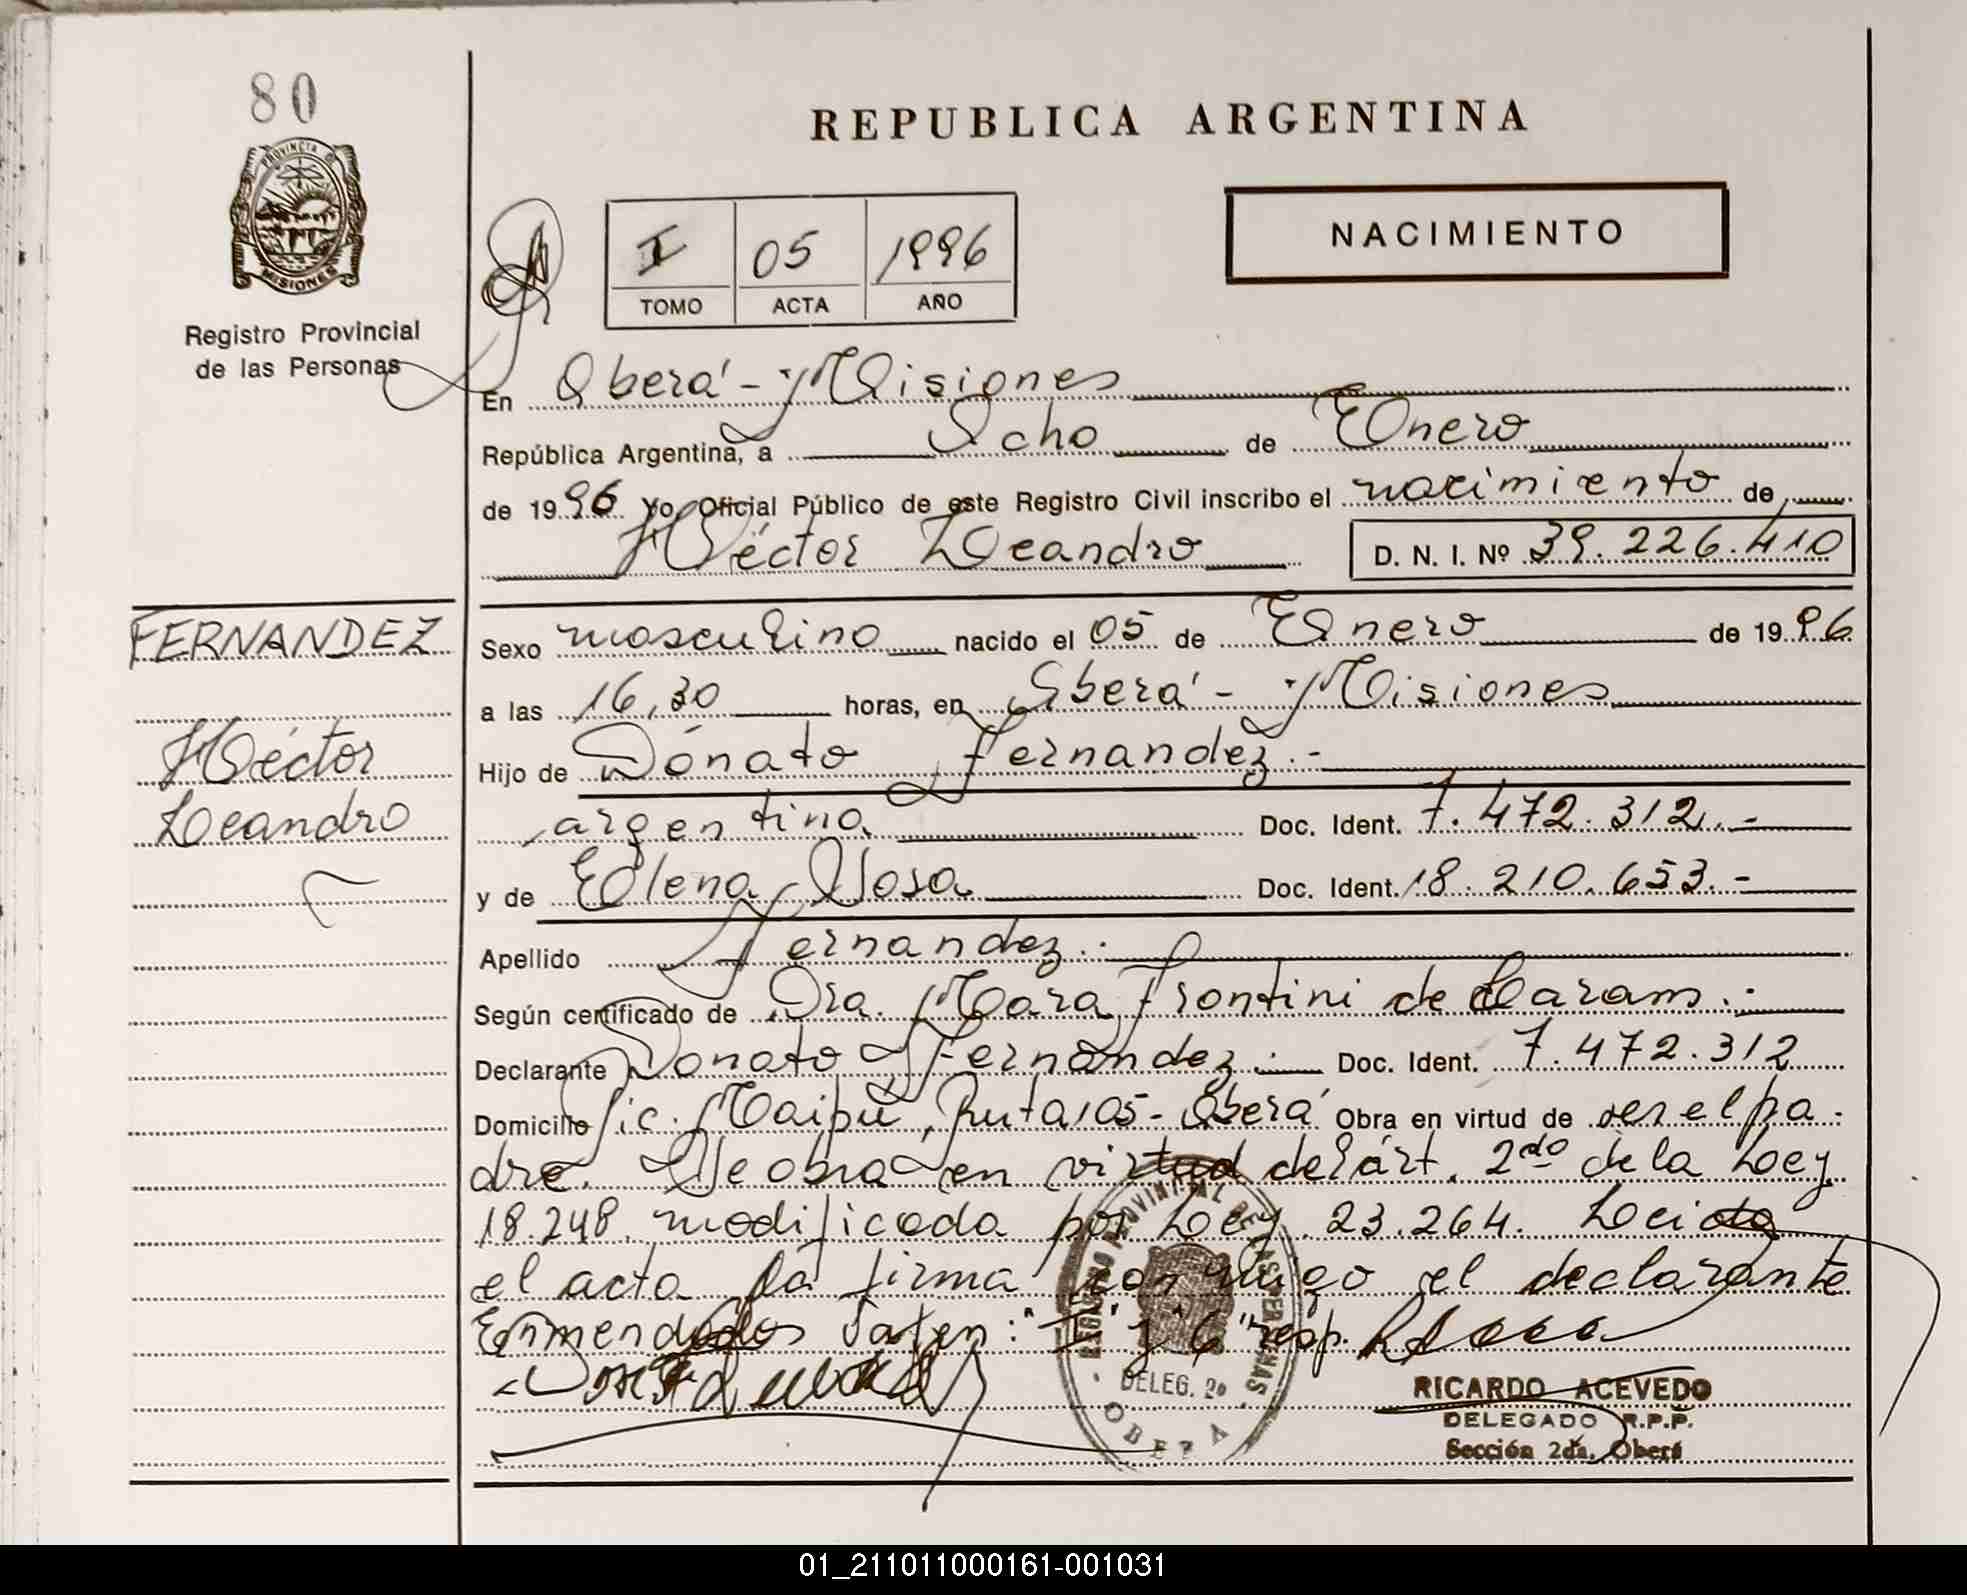 80
REPUBLICA ARGENTINA
PROVINCIA DE
MISIONES
NACIMIENTO
I 05 1996
TOMO ACTA AÑO
Registro Provincial
de las Personas
En Oberá - Misiones
República Argentina, a Ocho de Enero
de 1996 Yo Oficial Público de este Registro Civil inscribo el nacimiento de
Héctor Leandro D. N. I. Nº 39.226.410
FERNANDEZ
Sexo masculino nacido el 05 de Enero de 1996
a las 16,30 horas, en Oberá - Misiones
Héctor
Hijo de Dónato Fernandez.-
Leandro
argentina Doc. Ident. 7.472.312.-
y de Elena Rosa Doc. Ident. 18.210.653.-
Apellido Fernandez.
Según certificado de Dra. Mara Frontini de Caram.-
Declarante Donato Fernandez. Doc. Ident. 7.472.312
Domicilio Pic. Maipú, Ruta 105 - Oberá Obra en virtud de ser el pa-
dre. Se obra en virtud del árt. 2do de la Ley
18.248 modificada por Ley 23.264. Leida
el acta la firma conmigo el declarante
Enmendados Valen: "I" y "6" resp.
REGISTRO PROVINCIAL DE LAS PERSONAS
DELEG. 2a
OBERA
RICARDO ACEVEDO
DELEGADO R.P.P.
Sección 2da. Oberá
01_211011000161-001031